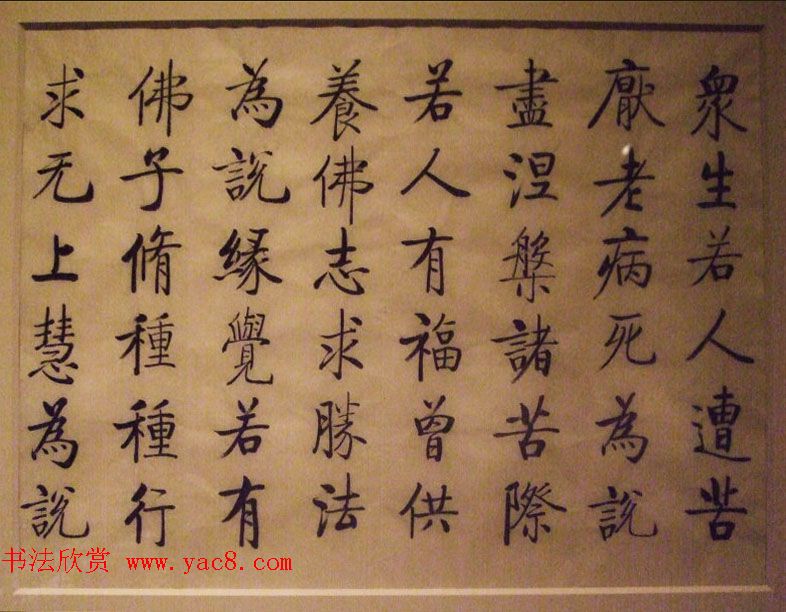 眾生若人遭苦
厭老病死為說
盡涅槃諸苦際
若人有福曾供
養佛志求勝法
為說緣覺若有
佛子脩種種行
求无上慧為說
书法欣赏 www.yac8.com